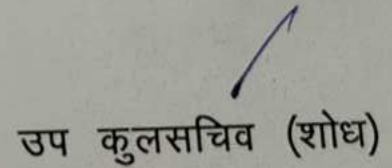 उप कुलसचिव (शोध)